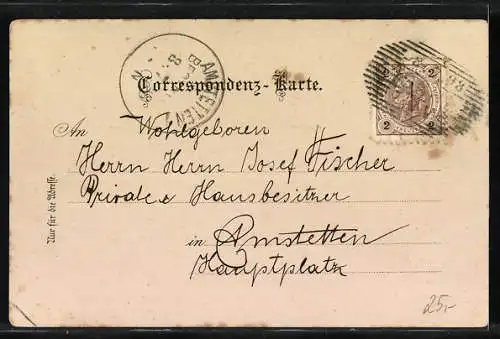 AMSTETTEN
Correspondenz-Karte.
2 2
2 2
An Wohlgeboren
Herrn Herrn Josef Fischer
Private & Hausbesitzer
in Amstetten
Hauptplatz
Nur für die Adresse.
25,-